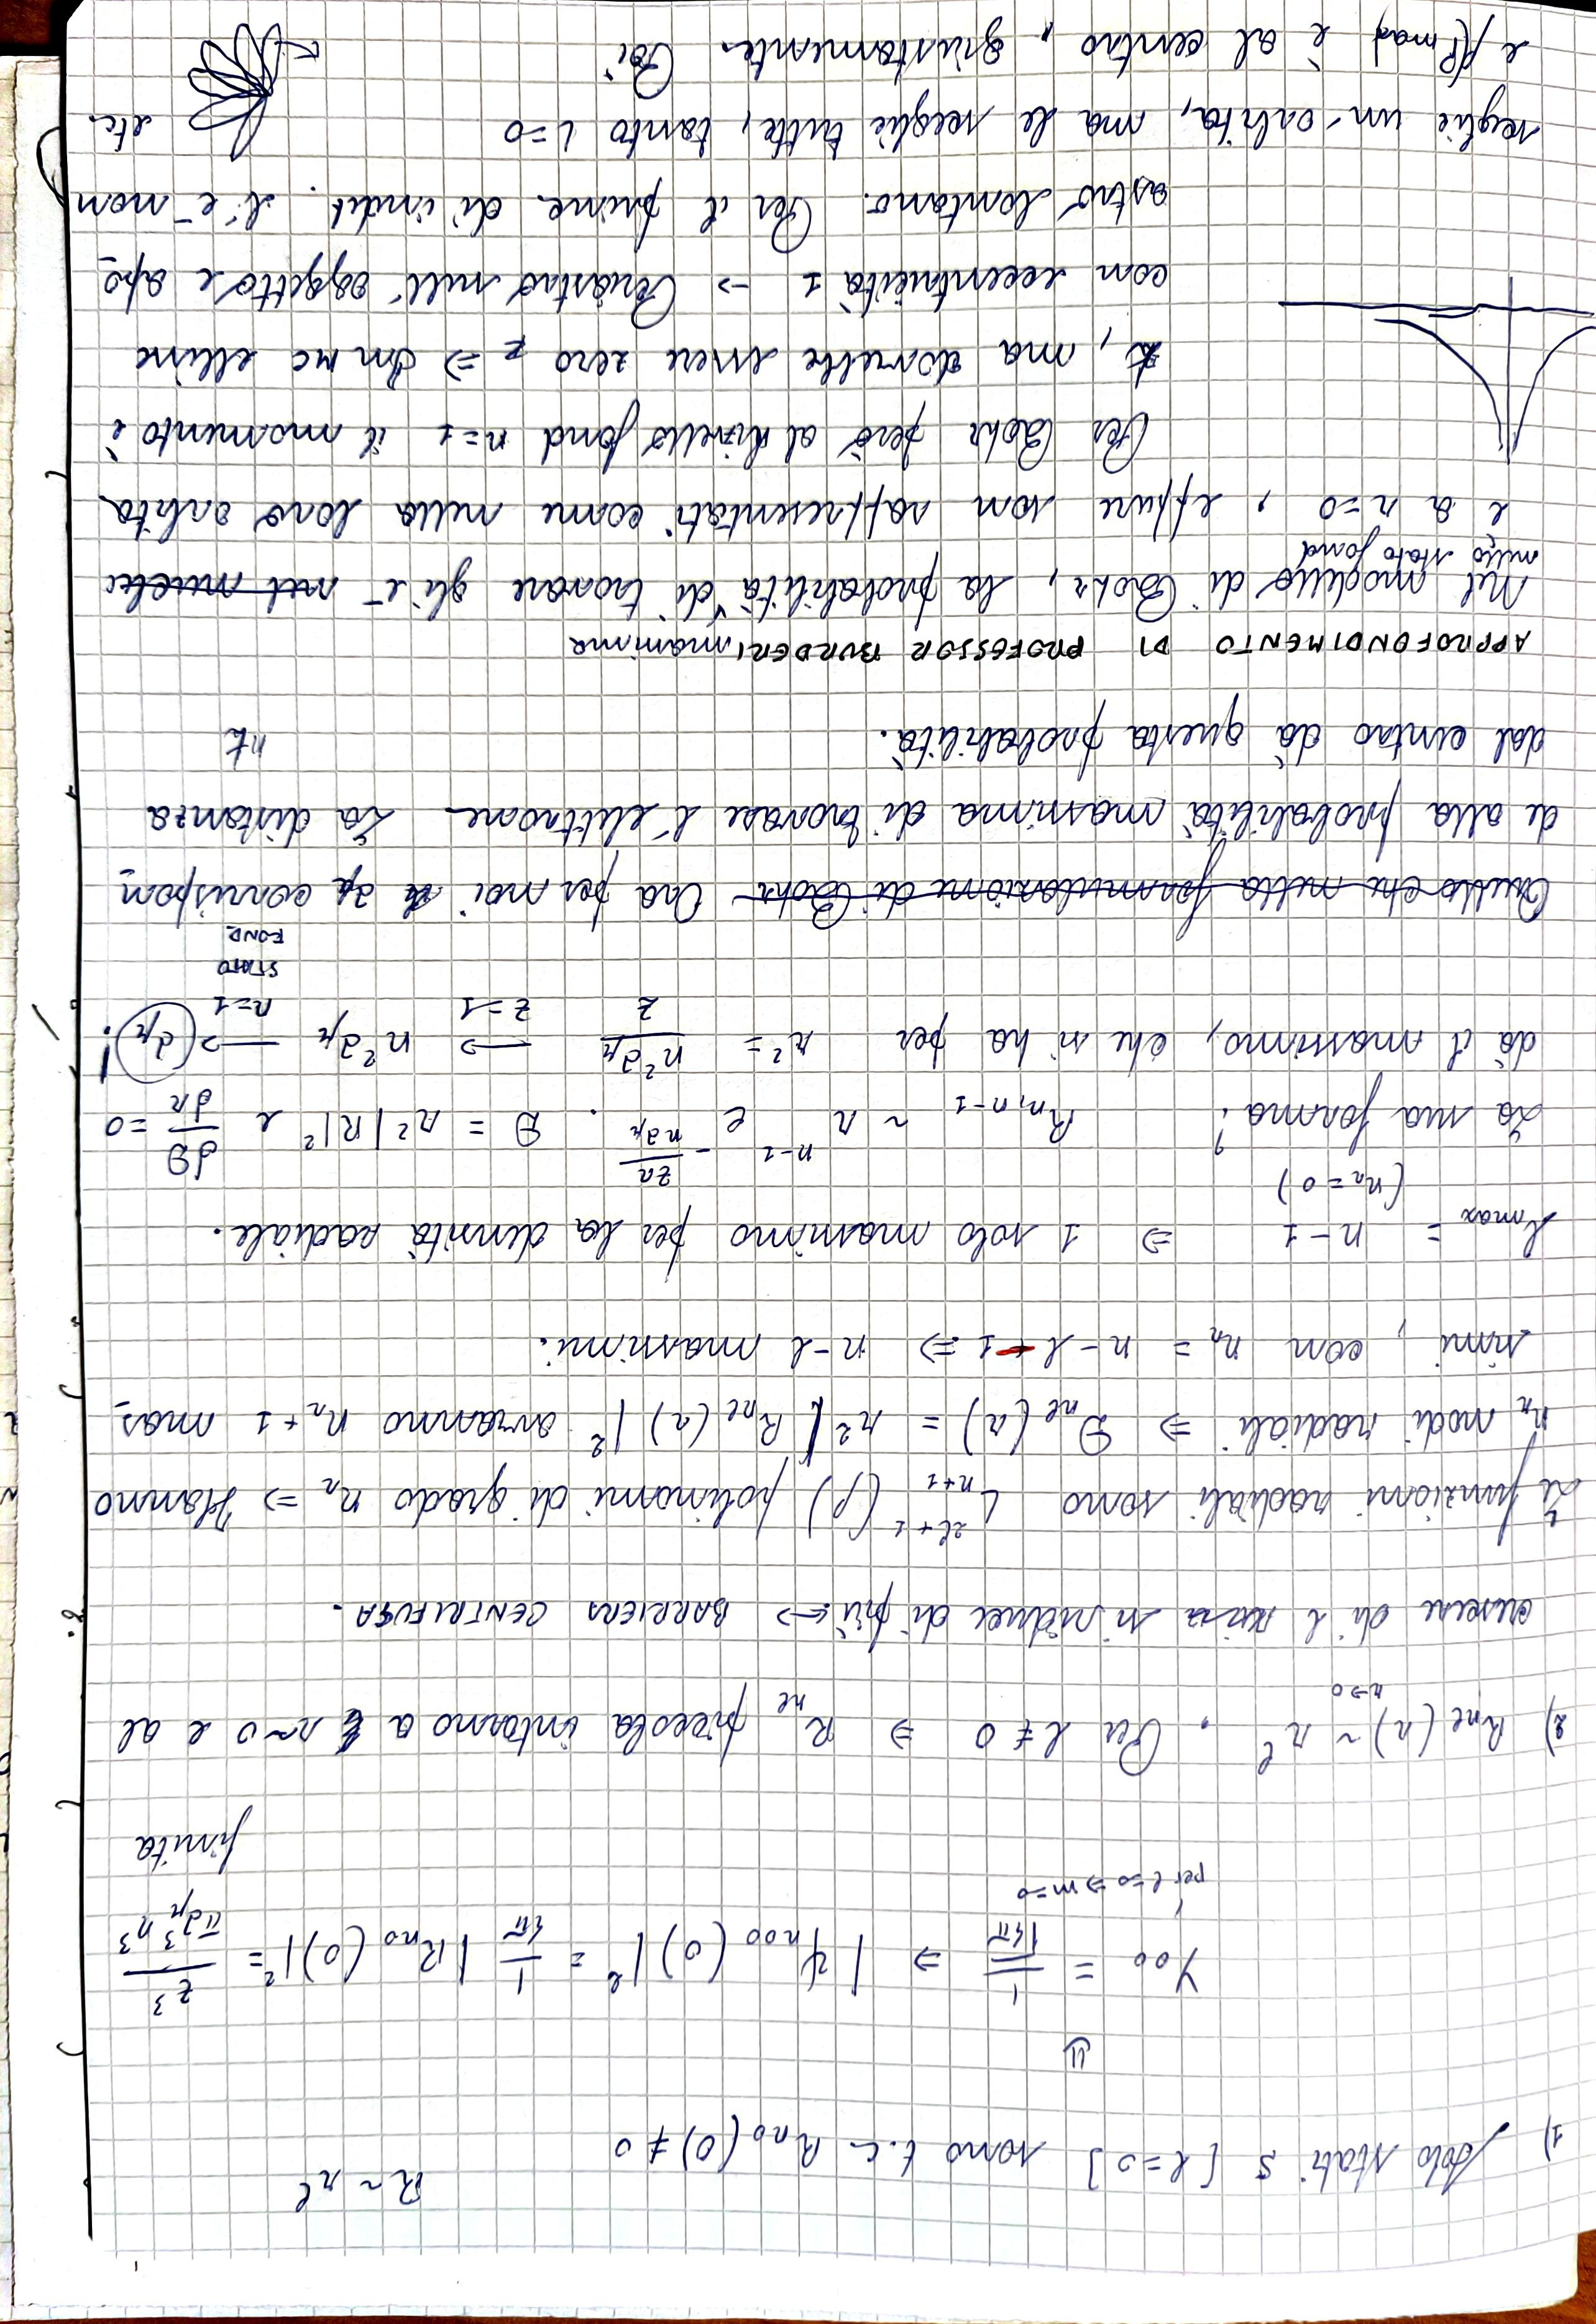 1) Solo stati s [l=0] sono t.c. R_{n0}(0) ≠ 0
R ~ r^l
⇓
Y_{00} = 1/√4π ⇒ |ψ_{n00}(0)|² = 1/4π |R_{n0}(0)|² = z³/πa_μ³n³
per l=0 ⇒ m=0
finita
2) R_{nl}(r) ~ r^l . Per l ≠ 0 ⇒ R_{nl} piccola intorno a r~0 e al
r→0
crescere di l si riduce di più ↔ BARRIERA CENTRIFUGA.
Le funzioni radiali sono L_{n+1}^{2l+1}(ρ) polinomi di grado n_r ⇒ Hanno
n_r nodi radiali ⇒ D_{nl}(r) = r²|R_{nl}(r)|² avranno n_r+1 mas-
simi, con n_r = n-l-1 ⇒ n-l massimi.
l_{max} = n-1 ⇒ 1 solo massimo per la densità radiale.
(n_r=0)
La sua forma? R_{n,n-1} ~ r^{n-1} e^{-zr/na_μ}. D = r²|R|² e dD/dr = 0
dà il massimo, che si ha per r² = n²a_μ/z → n²a_μ → a_μ!
z=1
n=1
STATO
FOND.
Quello che nella formulazione di Bohr Ora per noi a_μ corrispon-
de alla probabilità massima di trovare l'elettrone. La distanza
dal centro dà questa probabilità.
nℏ
APPROFONDIMENTO DI PROFESSOR BURDERI massima
Nel modello di Bohr, la probabilità di trovare gli e⁻ nel nuclei
nello stato fond
è a r=0, eppure son rappresentati come nella loro orbita
Per Bohr però al livello fond n=1 il momento è
ℏ, ma dovrebbe essere zero ⇒ In MC ellisse
con eccentricità 1 → Periastro nell'oggetto e apo-
astro lontano. Per il princ. di indet. l'e⁻ non
sceglie un'orbita, ma le sceglie tutte, tanto L=0 etc.
e P max è al centro, giustamente. Poi